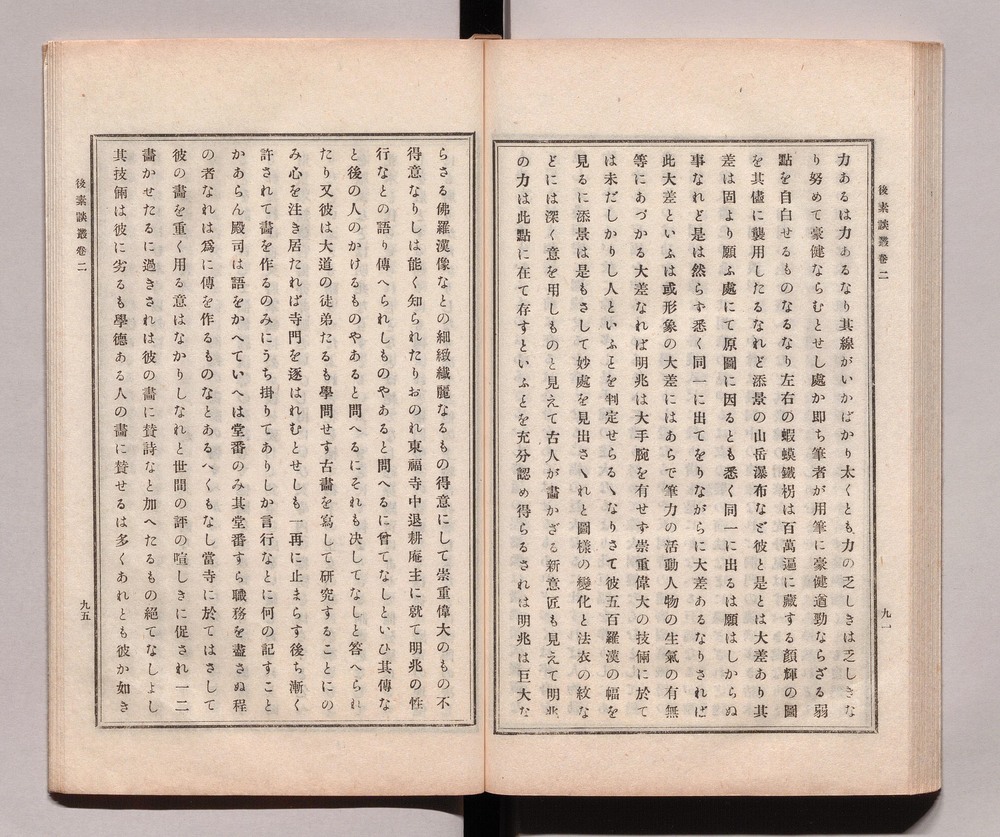 後素談叢卷二
九一
力あるは力あるなり其線がいかばかり太くとも力の乏しきは乏しきな
り努めて豪健ならむとせし處か即ち筆者が用筆に豪健遒勁ならざる弱
點を自白せるものなるなり左右の蝦蟆鐵拐は百萬遍に藏する顏輝の圖
を其儘に襲用したるなれど添景の山岳瀑布など彼と是とは大差あり其
差は固より願ふ處にて原圖に因るとも悉く同一に出るは願はしからぬ
事なれど是は然らす悉く同一に出てをりながらに大差あるなりされば
此大差といふは或形象の大差にはあらで筆力の活動人物の生氣の有無
等にあづかる大差なれば明兆は大手腕を有せす崇重偉大の技倆に於て
は未だしかりし人といふを判定せらるヽなりさて彼五百羅漢の幅を
見るに添景は是もさして妙處を見出さヽれと圖樣の變化と法衣の紋な
どには深く意を用しものと見えて古人が畫かざる新意匠も見えて明兆
の力は此點に在て存すといふとを充分認め得らるされは明兆は巨大な
らさる佛羅漢像なとの細緻纖麗なるもの得意にして崇重偉大のもの不
得意なりしは能く知られたりおのれ東福寺中退耕庵主に就て明兆の性
行なとの語り傳へられしものやあると問へるに曾てなしといひ其傳な
と後の人のかけるものやあると問へるにそれも決してなしと答へられ
たり又彼は大道の徒弟たるも學問せす古畫を寫して研究することにの
み心を注き居たれば寺門を逐はれむとせしも一再に止まらす後ち漸く
許されて畫を作るのみにうち掛りてありしか言行なとに何の記すこと
かあらん殿司は語をかへていへは堂番のみ其堂番すら職務を盡さぬ程
の者なれは爲に傳を作るものなとあるへくもなし當寺に於てはさして
彼の畫を重く用る意はなかりしなれと世間の評の喧しきに促され一二
畫かせたるに過きされは彼の畫に賛詩なと加へたるもの絶てなしよし
其技倆は彼に劣るも學德ある人の畫に賛せるは多くあれとも彼か如き
後素談叢卷二
九五